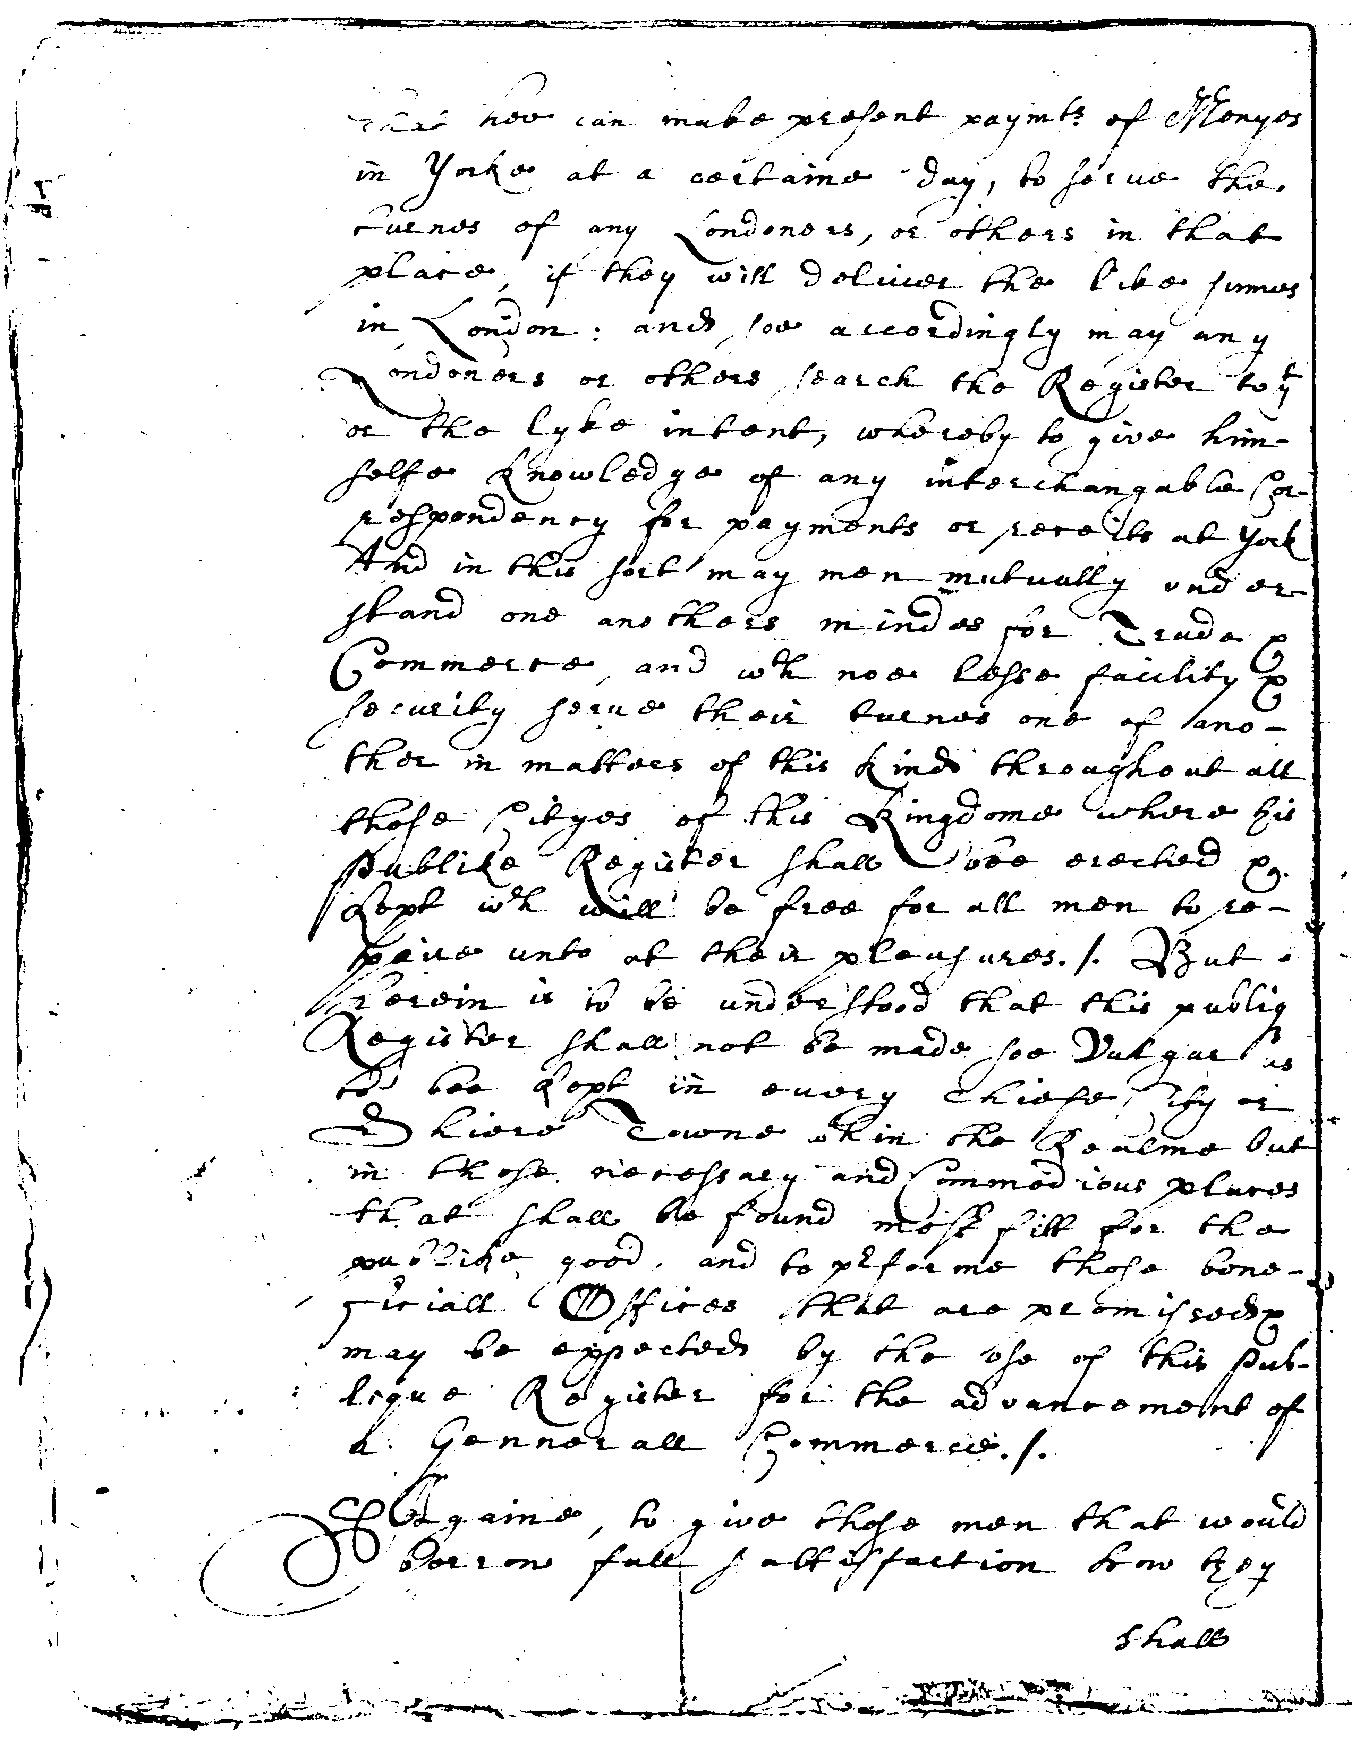 that hee can make present paymts of Monyes
in Yorke at a certaine day, to serue the
turnes of any Londoners, or others in that
place, if they will deliuer the like summes
in London: and soe accordingly may any
Londoners or others search the Register to yt
or the lyke intent, whereby to give him-
selfe knowledge of any interchangable Cor-
respondency for payments or receits at York
And in this sort may men mutually vnder-
stand one anothers mindes for Trade &
Commerce, and wth noe lesse facility &
security serue their turnes one of ano-
ther in matters of this kind throughout all
those Cityes of this Kingdome where this
Publike Register shall bee erected &
kept wch will be free for all men to re-
paire unto at their pleasures./. But
herein is to be understood that this publiq
Register shall not be made soe Vulgar as
to bee kept in euery Chiefe Citty or
Shiere Towne wthin the Realme but
in those necessary and Commodious places
that shall be found most fitt for the
publike good, and to pforme those bene-
ficiall Offices that are promissed &
may be expected by the vse of this Pub-
lique Register for the advancement of
a Gennerall Commerce./.
Againe, to give those men that would
borrow full sattisfaction how they
shall